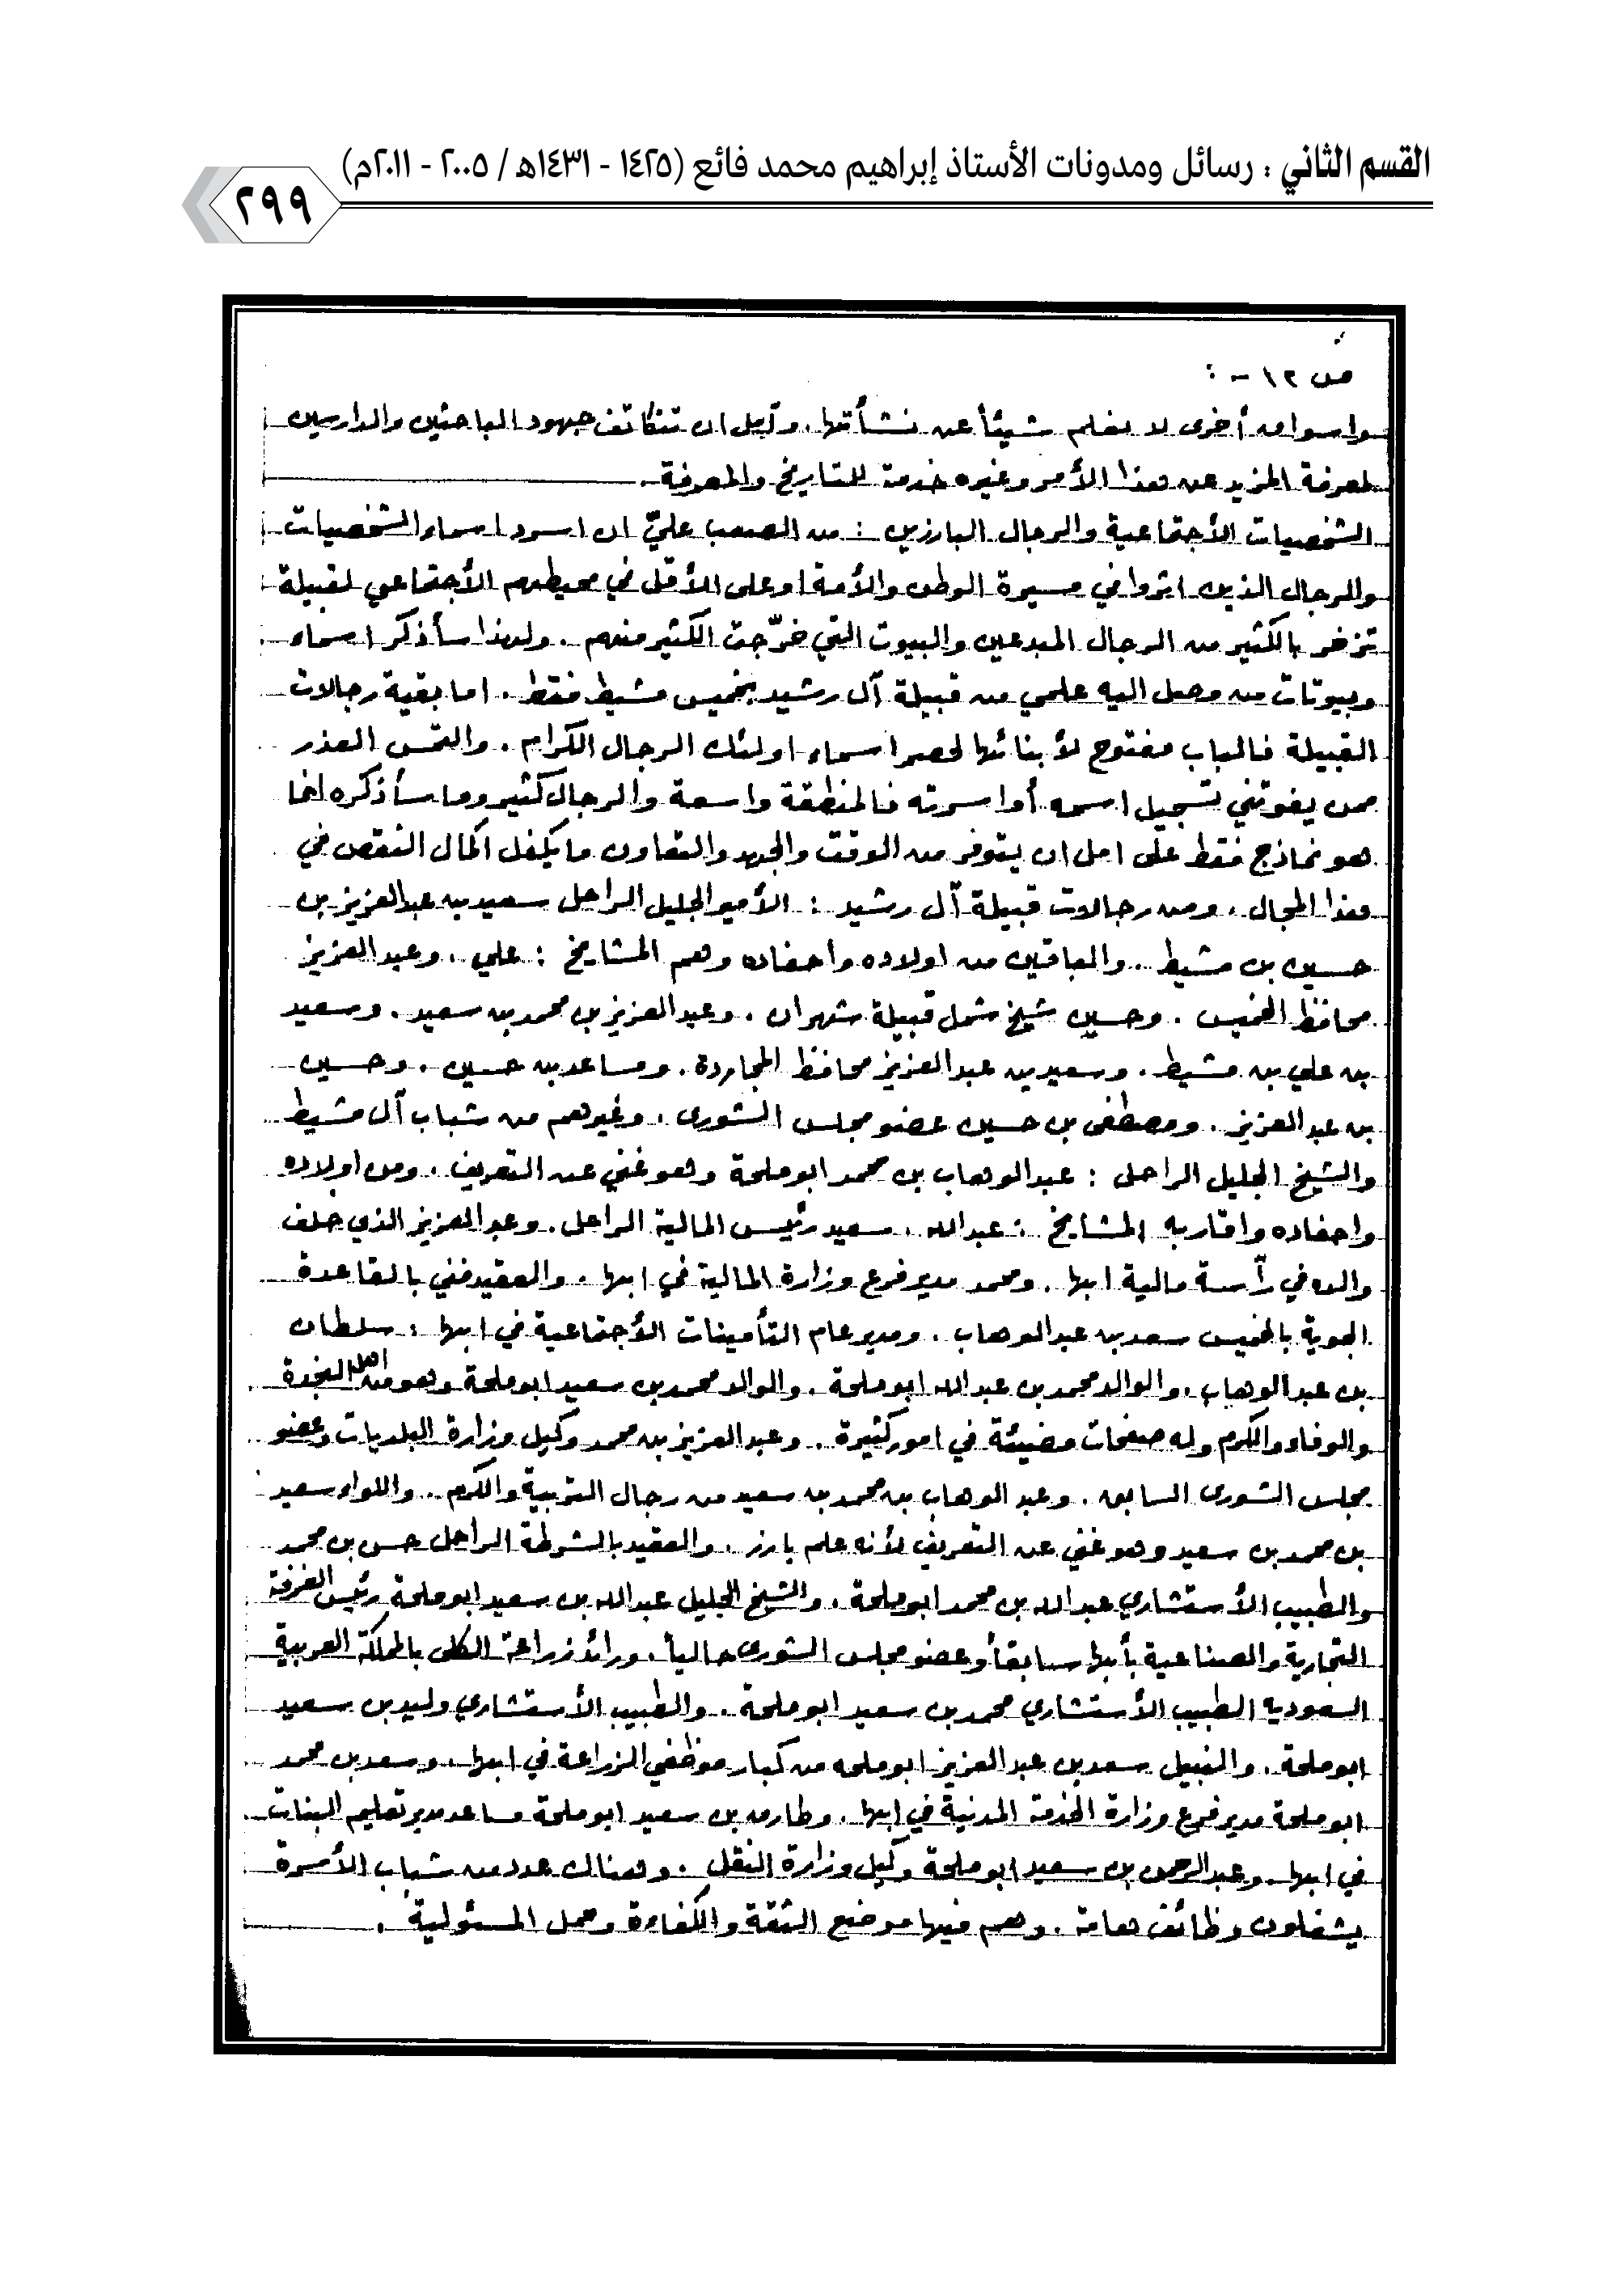 القسم الثاني : رسائل ومدونات الأستاذ إبراهيم محمد فائع (١٤٢٥ - ١٤٣١هـ / ٢٠٠٥ - ٢٠١١م)
٢٩٩
ص ١٢ - :
واسواق أخرى لا نعلم شيئاً عن نشأتها . ونأمل ان تتكاتف جهود الباحثين والدارسين
لمعرفة المزيد عن هذا الأمر وغيره خدمة للتاريخ والمعرفة .
الشخصيات الأجتماعية والرجال البارزين : من الصعب عليّ ان اسرد اسماء الشخصيات
والرجال الذين اثروا في مسيرة الوطن والأمة او على الأقل في محيطهم الأجتماعي لقبيلة
تزخر بالكثير من الرجال المبدعين والبيوت التي خرّجت الكثير منهم . ولهذا سأذكر اسماء
وبيوتات من وصل اليه علمي من قبيلة آل رشيد بخميس مشيط فقط . اما بقية رجالات
القبيلة فالباب مفتوح لأبنائها لحصر اسماء اولئك الرجال الكرام . والتمس العذر
ممن يفوتني تسجيل اسمه أو اسرته فالمنطقة واسعة والرجال كثير وما سأذكره انما
هو نماذج فقط على امل ان يتوفر من الوقت والجهد والتعاون ما يكفل اكمال النقص في
هذا المجال . ومن رجالات قبيلة آل رشيد : الأمير الجليل الراحل سعيد بن عبدالعزيز بن
حسين بن مشيط . والباقين من اولاده واحفاده وهم المشايخ : علي . وعبدالعزيز
محافظ الخميس . وحسين شيخ شمل قبيلة شهران . وعبدالعزيز بن محمد بن سعيد . وسعيد
بن علي بن مشيط . وسعيد بن عبدالعزيز محافظ المجاردة . ومساعد بن حسين . وحسين
بن عبدالعزيز . ومصطفى بن حسين عضو مجلس الشورى . وغيرهم من شباب آل مشيط
والشيخ الجليل الراحل : عبدالوهاب بن محمد ابوملحة وهو غني عن التعريف . ومن اولاده
واحفاده واقاربه المشايخ : عبدالله . سعيد رئيس المالية الراحل . وعبدالعزيز الذي خلف
والده في رآسة مالية ابها . ومحمد مدير فرع وزارة المالية في ابها . والعقيد فني بالقاعدة
الجوية بالخميس سعد بن عبدالوهاب . ومدير عام التأمينات الأجتماعية في ابها : سلطان
بن عبدالوهاب . والوالد محمد بن عبدالله ابوملحة . والوالد محمد بن سعيد ابوملحة وهو من اهل النجدة
والوفاء والكرم وله صفحات مضيئة في امور كثيرة . وعبدالعزيز بن محمد وكيل وزارة البلديات وعضو
مجلس الشورى السابق . وعبدالوهاب بن محمد بن سعيد من رجال التربية والكرم . واللواء سعيد
بن محمد بن سعيد وهو غني عن التعريف لأنه علم بارز . والعقيد بالشرطة الراحل حسن بن محمد
والطبيب الأستشاري عبدالله بن محمد ابوملحة . والشيخ الجليل عبدالله بن سعيد ابوملحة رئيس الغرفة
التجارية والصناعية بأبها سابقاً وعضو مجلس الشورى حالياً . ورائد زراعة الكلى بالمملكة العربية
السعوديه الطبيب الأستشاري محمد بن سعيد ابوملحة . والطبيب الأستشاري وليد بن سعيد
ابوملحة . والنبيل سعد بن عبدالعزيز ابوملحه من كبار موظفي الزراعة في ابها . وسعد بن محمد
ابوملحة مدير فرع وزارة الخدمة المدنية في ابها . وطارق بن سعيد ابوملحة مساعد مدير تعليم البنات
في ابها . وعبدالرحمن بن سعيد ابوملحة وكيل وزارة النقل . وهنالك عدد من شباب الأسرة
يشغلون وظائف هامة . وهم فيها موضع الثقة والكفاءة ومحل المسئولية .